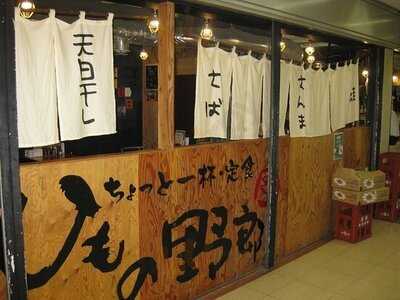 天日干し
さば
さんま
ちょっと一杯・定食
ひもの野郎